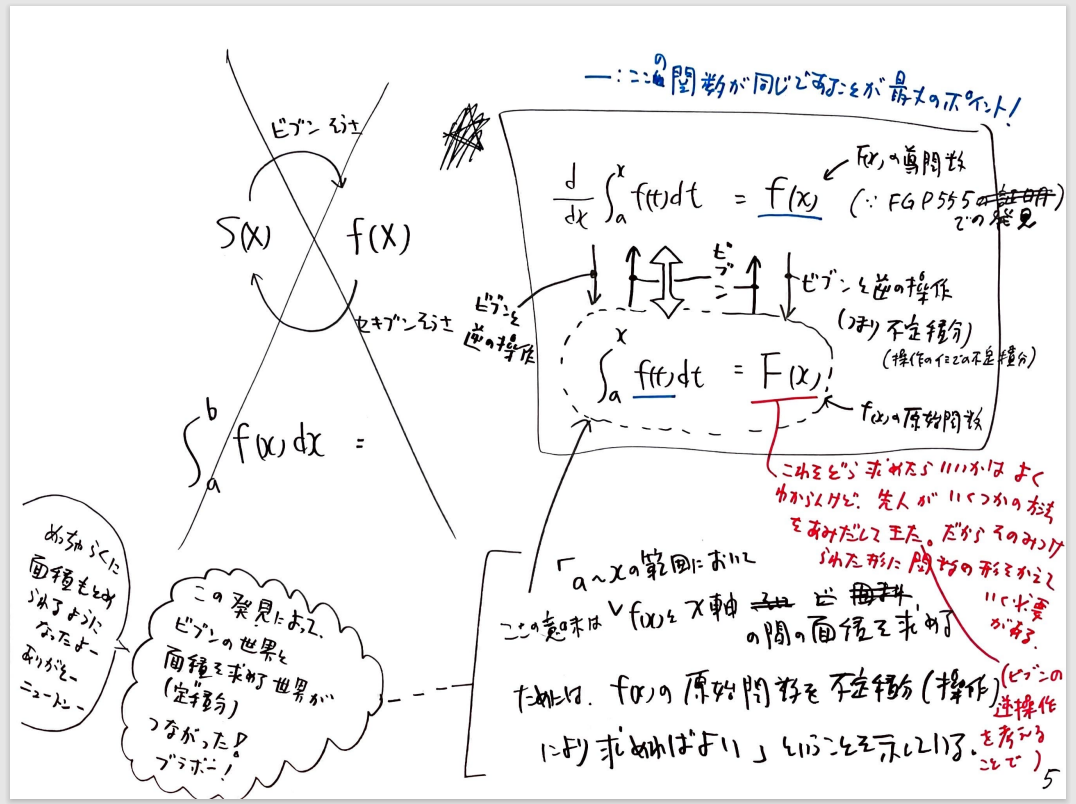 ー：ここの関数が同じであることが最大のポイント！
ビブンそうさ
S(x) f(x)
セキブンそうさ
∫_a^b f(x)dx =
d/dx ∫_a^x f(t)dt = f(x)
F(x)の導関数
(∵ FGP555の
での発見
ビブンと
逆の操作
ビブン
ビブンと逆の操作
(つまり不定積分)
(操作のイミでの不定積分)
∫_a^x f(t)dt = F(x)
f(x)の原始関数
これをどう求めたらいいかはよく
わからんけど、先人がいくつかの方法
をあみだしてきた。だからそのみつけ
られた形に関数の形をかえて
いく必要
がある。
(ビブンの
逆操作
を考える
ことで)
「a~xの範囲において
ここの意味は f(x)とx軸
の間の面積を求める
ためには、f(x)の原始関数を不定積分(操作)
により求めればよい」ということを示している。
この発見によって、
ビブンの世界と
面積を求める世界が
(定積分)
つながった！
ブラボー！
めっちゃらくに
面積もとめ
られるように
なったよー
ありがとー
ニュートンー
5